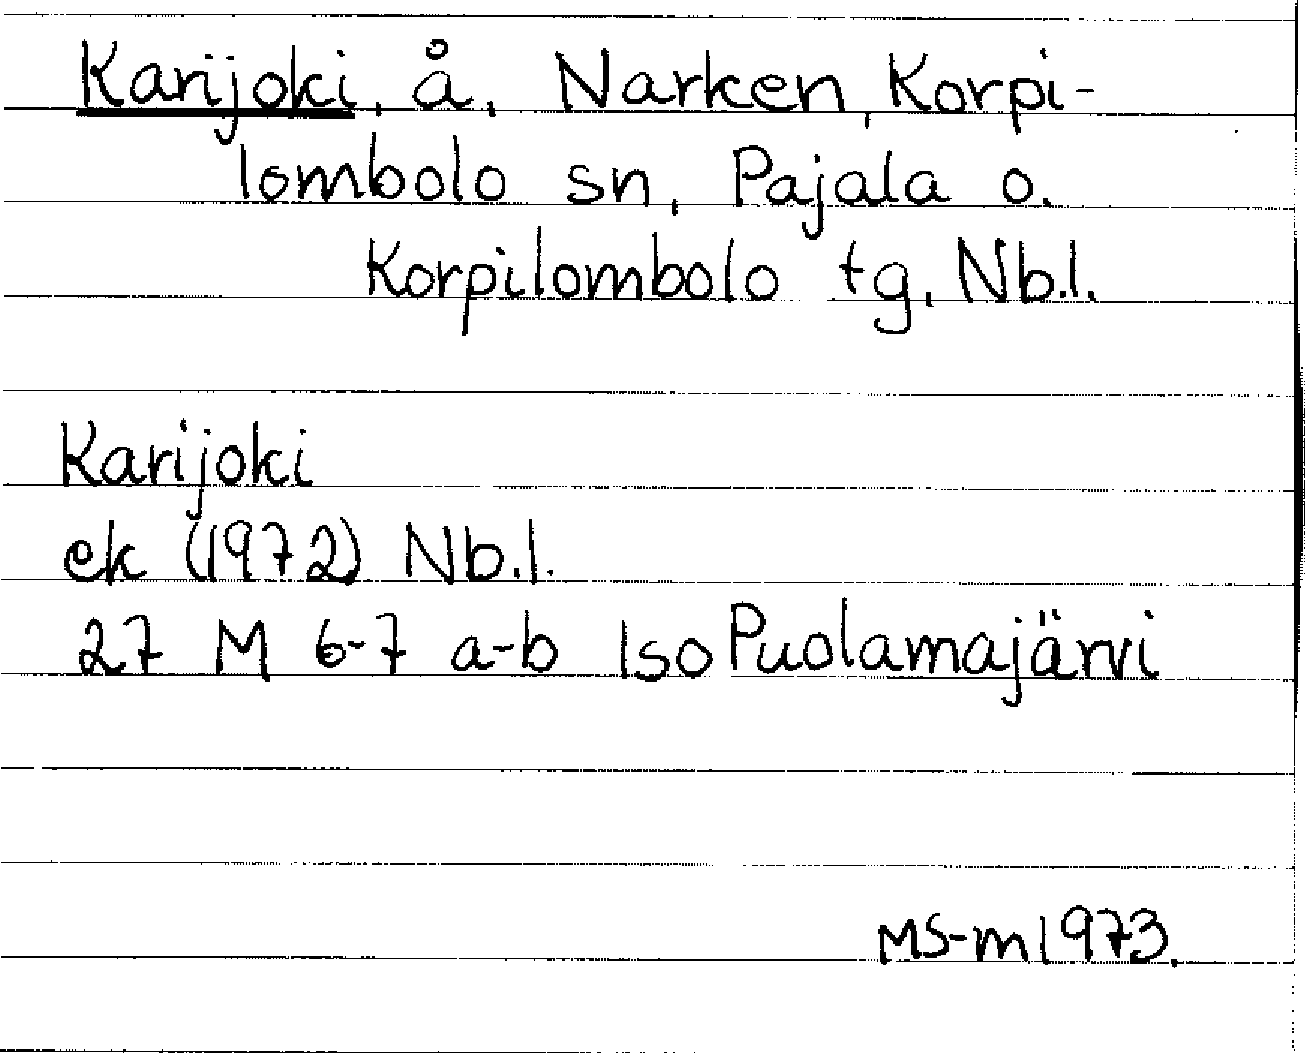 Karijoki, å, Narken, Korpi-
lombolo sn, Pajala o.
Korpilombolo tg, Nb.l.
Karijoki
ek (1972) Nb.l.
27 M 6-7 a-b Iso Puolamajärvi
MS-m 1973.